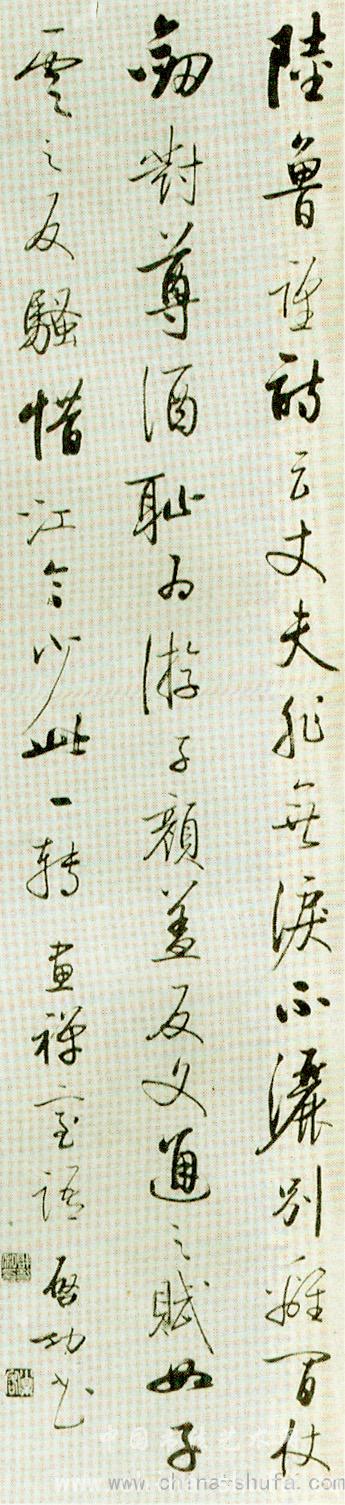 陸魯望詩云丈夫非無淚不灑別離間仗
劒對尊酒恥為游子顏蓋反文通之賦如子
雲之反騷惜江令少此一轉 畫禪室語 啓功書
中国书法艺术网
www.china-shufa.com